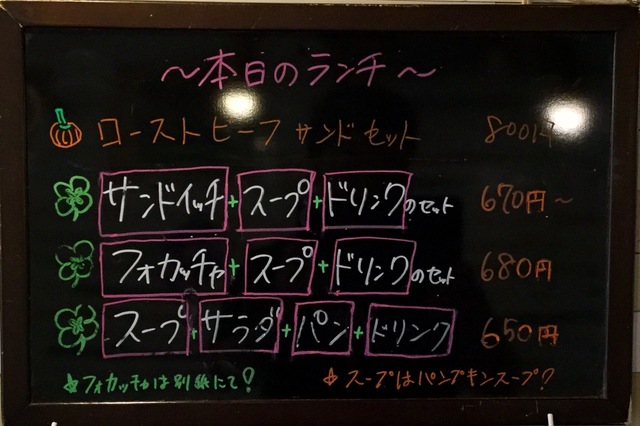 ～本日のランチ～
ローストビーフサンドセット 800円
サンドイッチ+スープ+ドリンクのセット 670円～
フォカッチャ+スープ+ドリンクのセット 680円
スープ+サラダ+パン+ドリンク 650円
☆フォカッチャは別紙にて! ☆スープはパンプキンスープ?